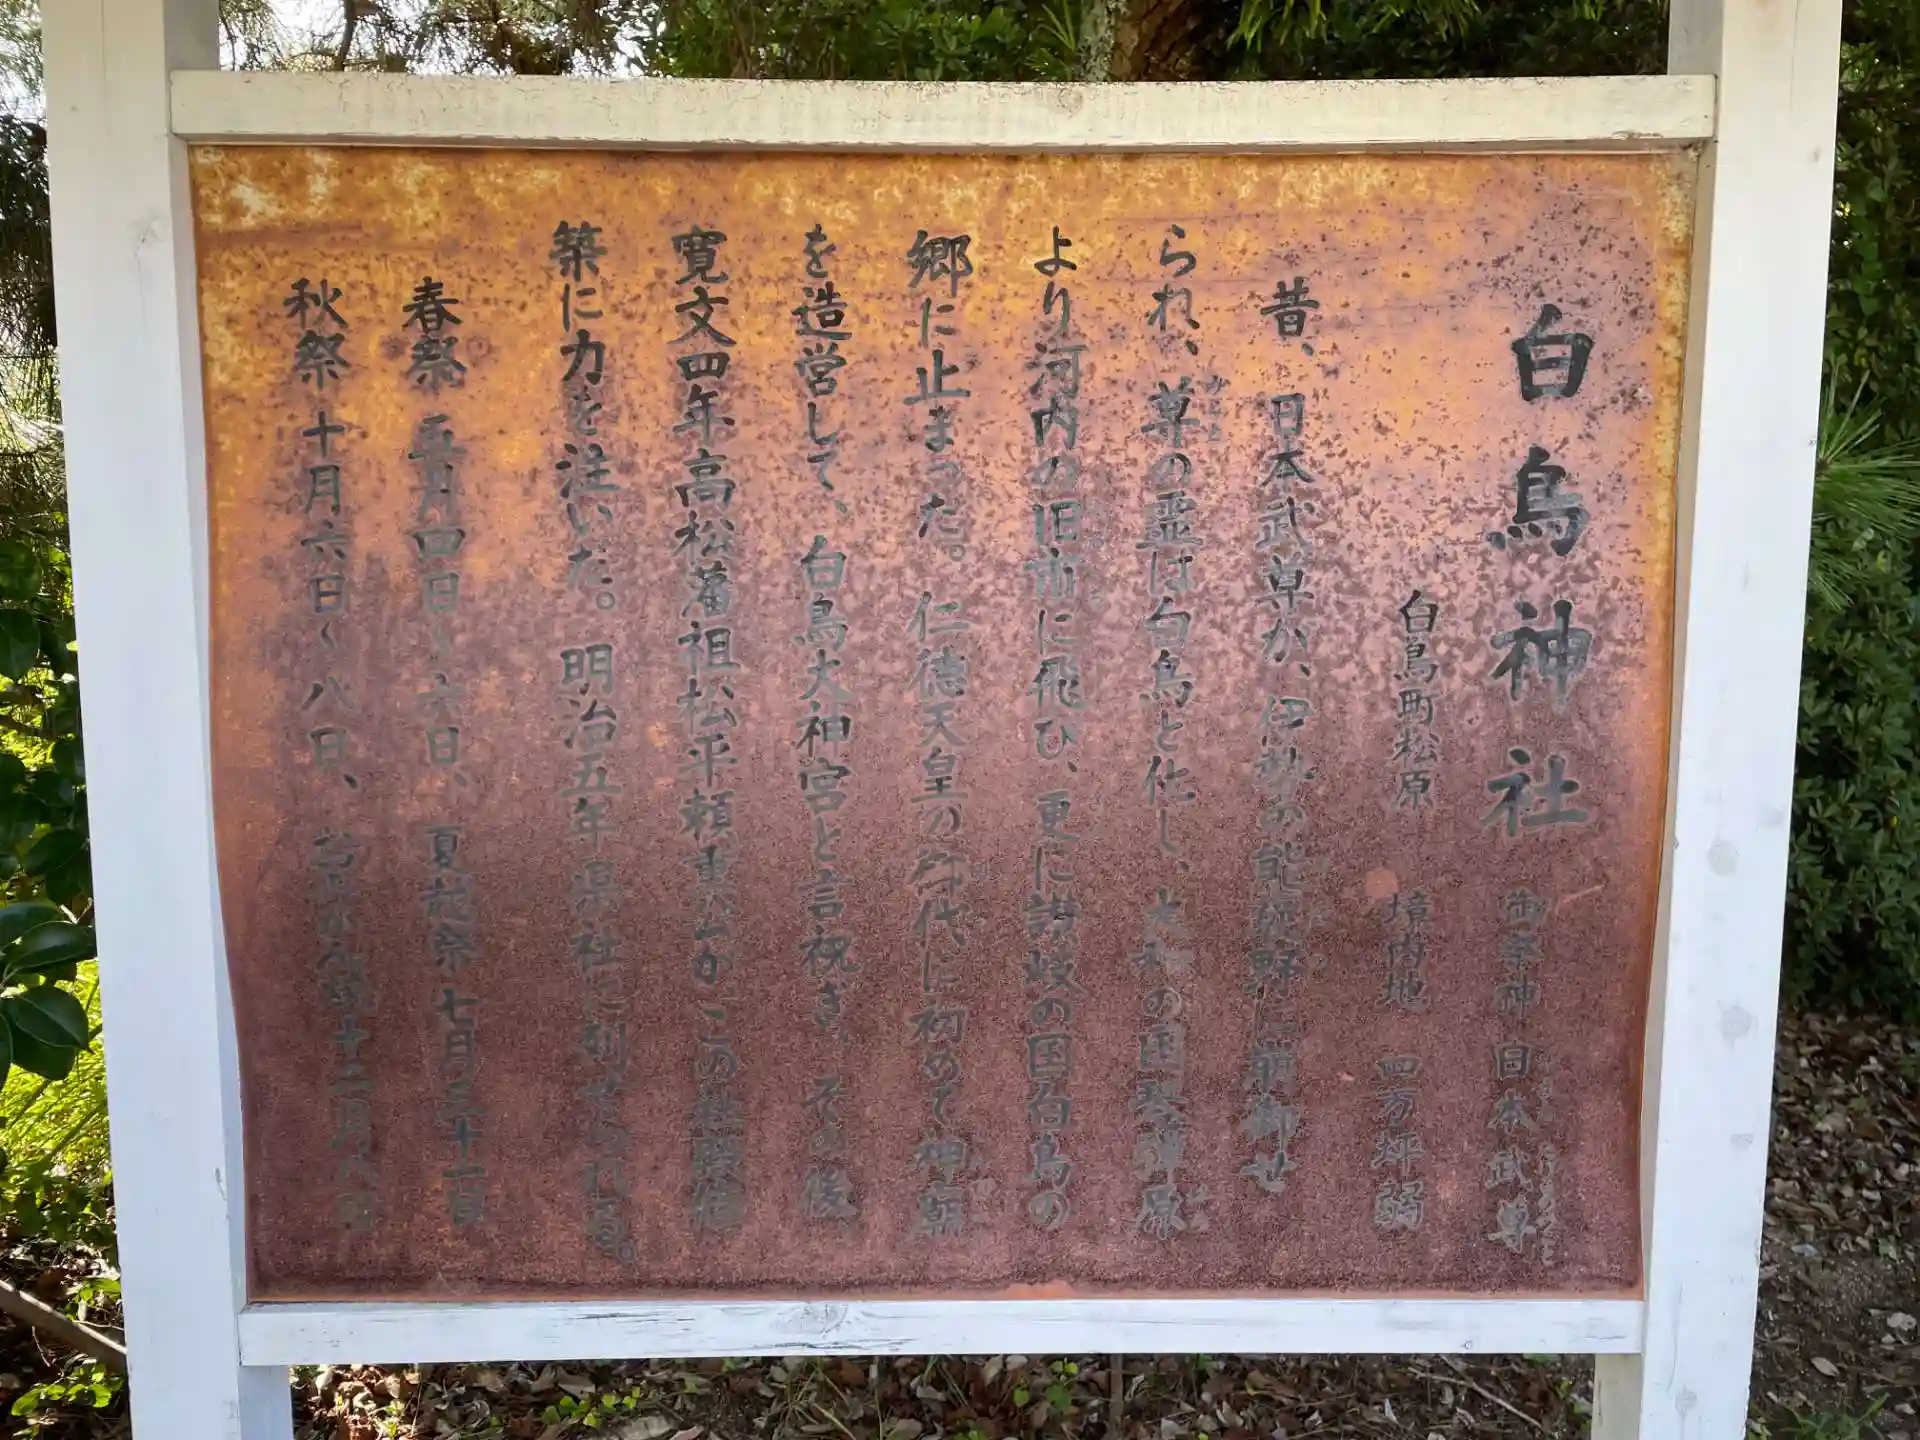 白鳥神社 御祭神 日本武尊
白鳥町松原 境内地 四万坪弱
昔、日本武尊が、伊勢の能褒野に崩御せ
られ、尊の霊は白鳥と化し、大和の国琴弾原
より河内の旧市に飛び、更に讃岐の国白鳥の
郷に止まった。仁徳天皇の御代に初めて神廟
を造営して、白鳥大神宮と言祝ぎ、その後、
寛文四年高松藩祖松平頼重公が、この社殿修
築に力を注いだ。明治五年県社に列せられる。
春祭 五月四日〜六日、夏越祭 七月三十一日
秋祭 十月六日〜八日、 十二月八日